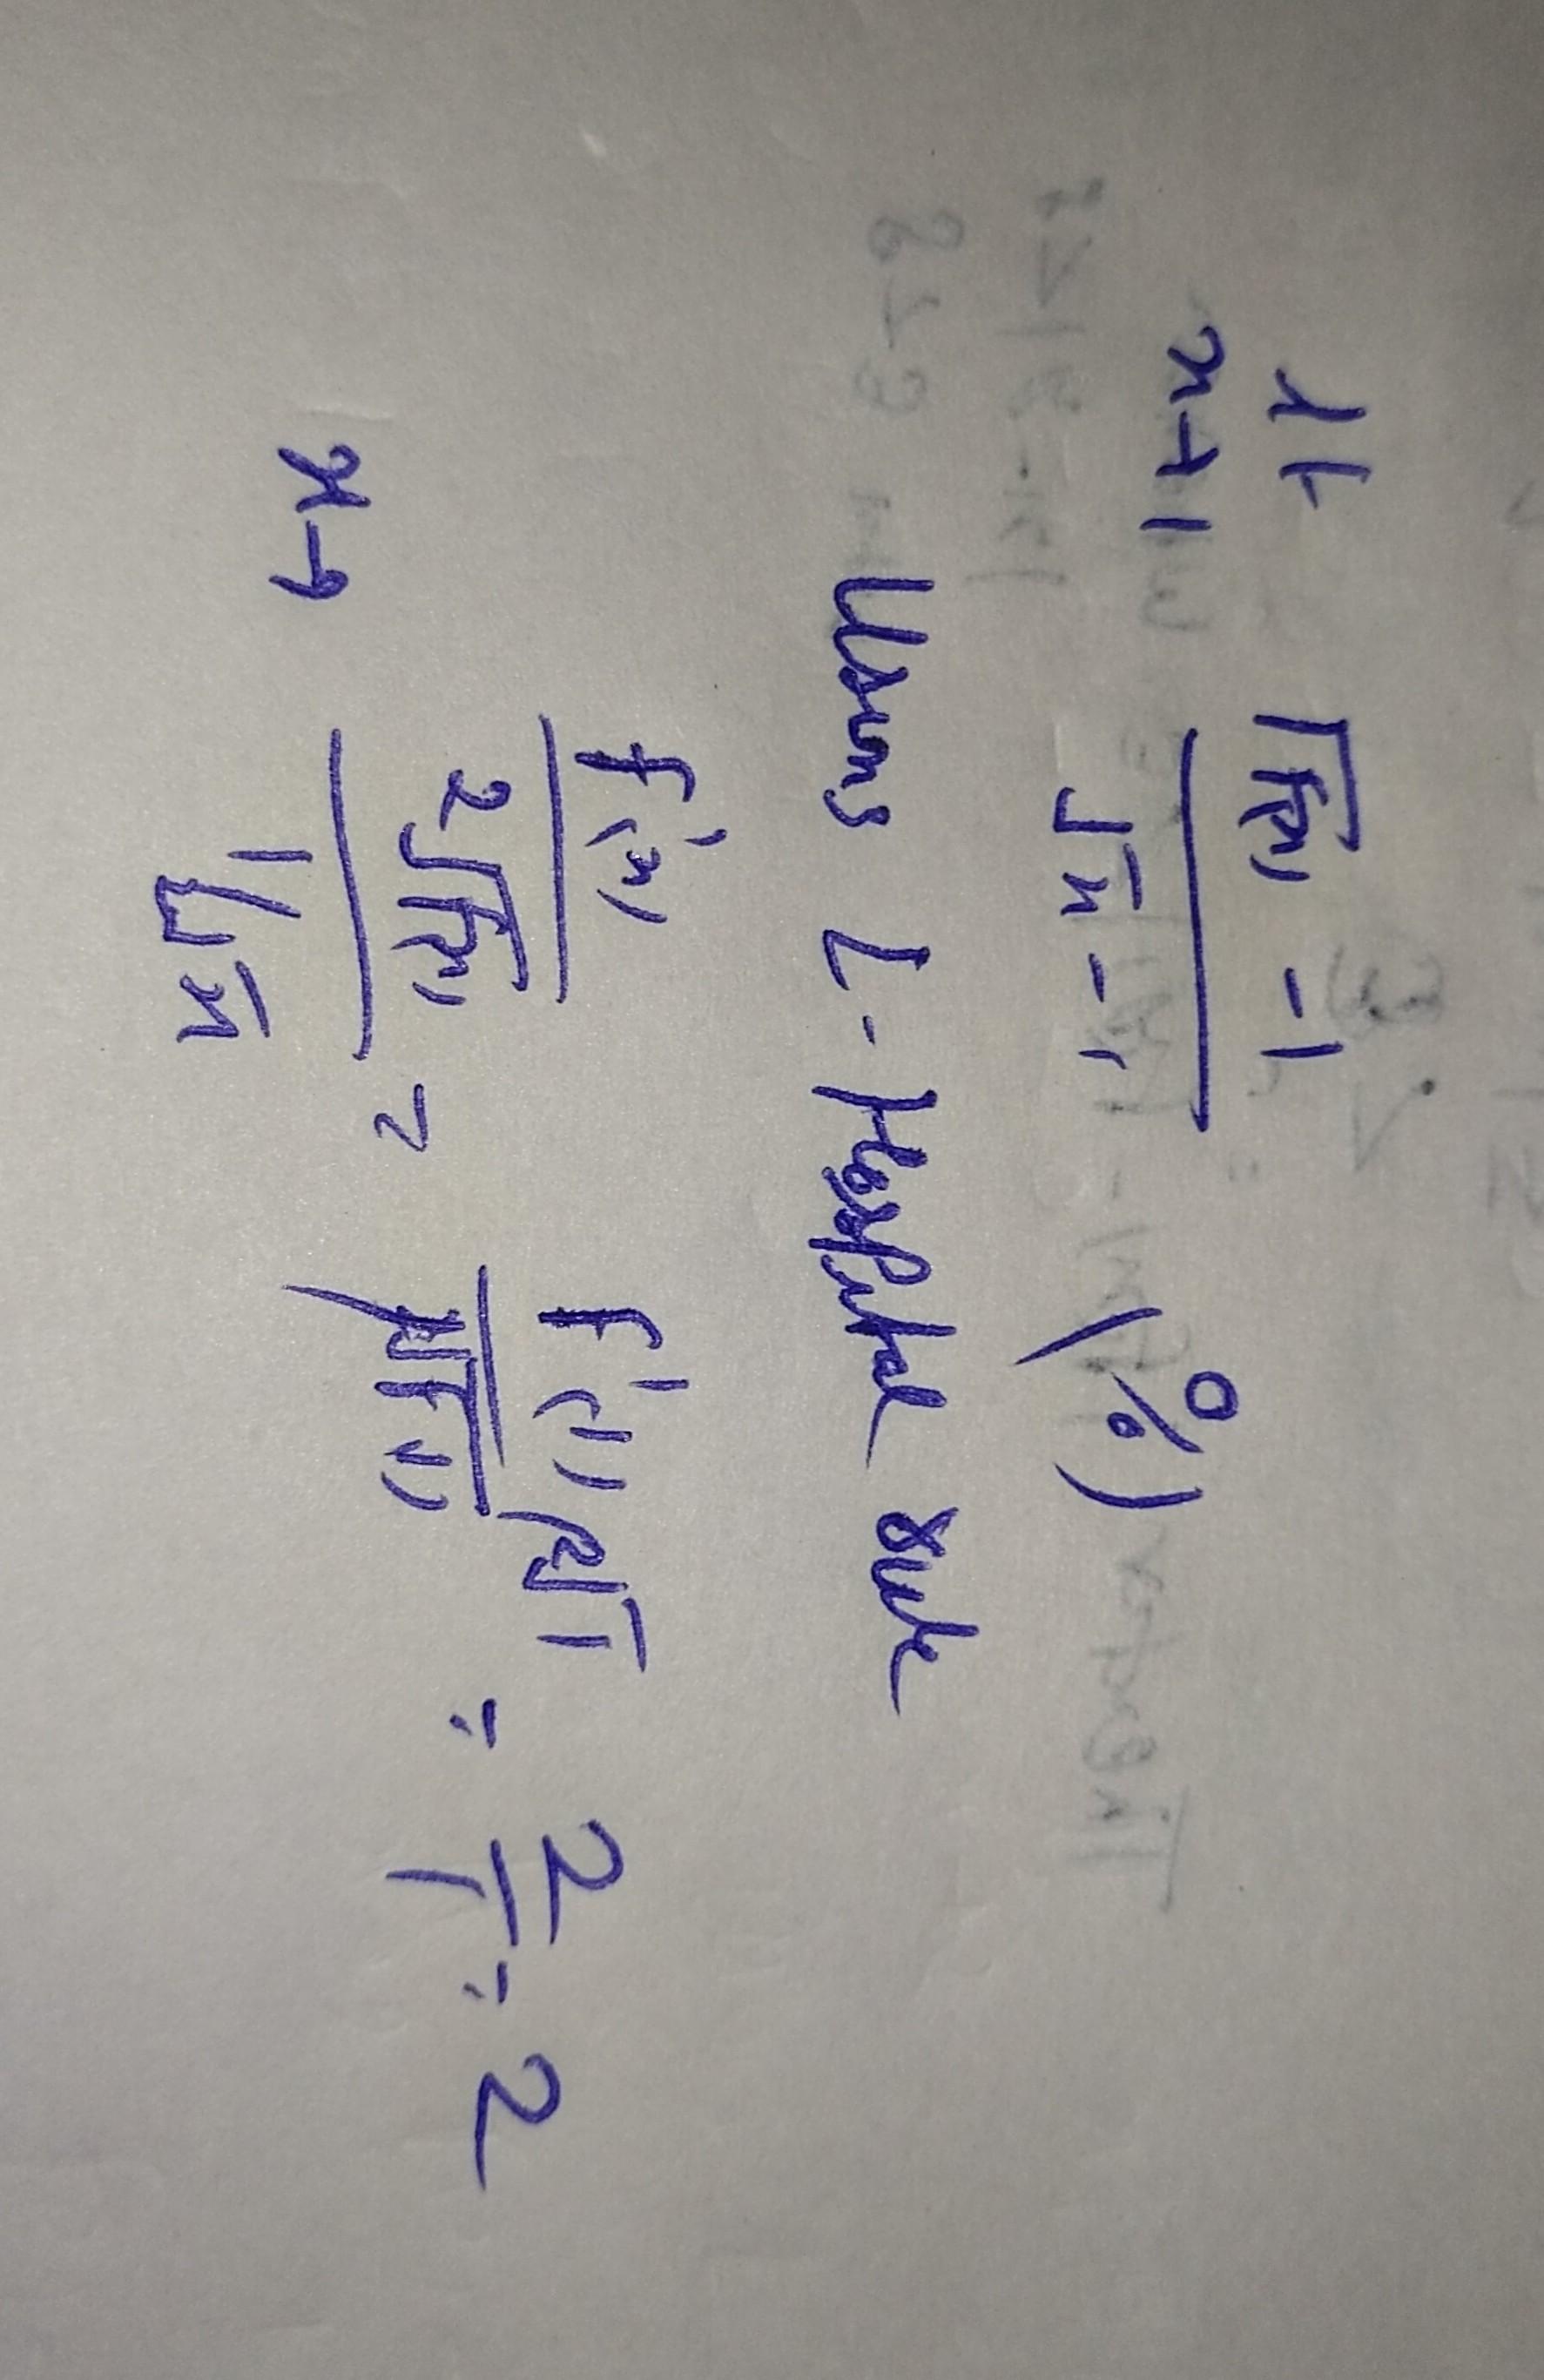 lt x→1 (√f(x) - 1)/(√x - 1) (0/0)
Using L-Hospital rule
x→ (f'(x)/2√f(x))/(1/2√x) = f'(1) 2√1 / 2√f(1) = 2/1 = 2